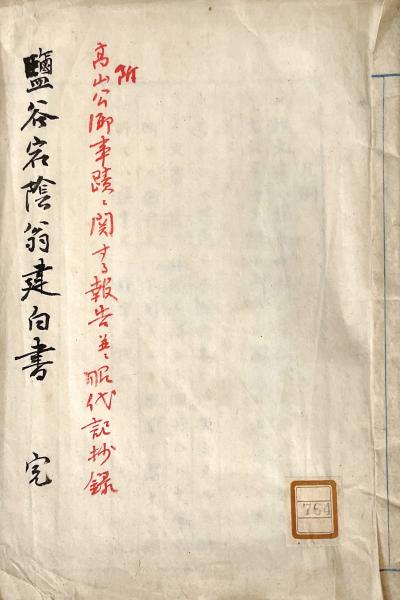 附
高山公御事蹟ニ関する報告並ニ昭代記抄録
鹽谷宕陰翁建白書 完
764